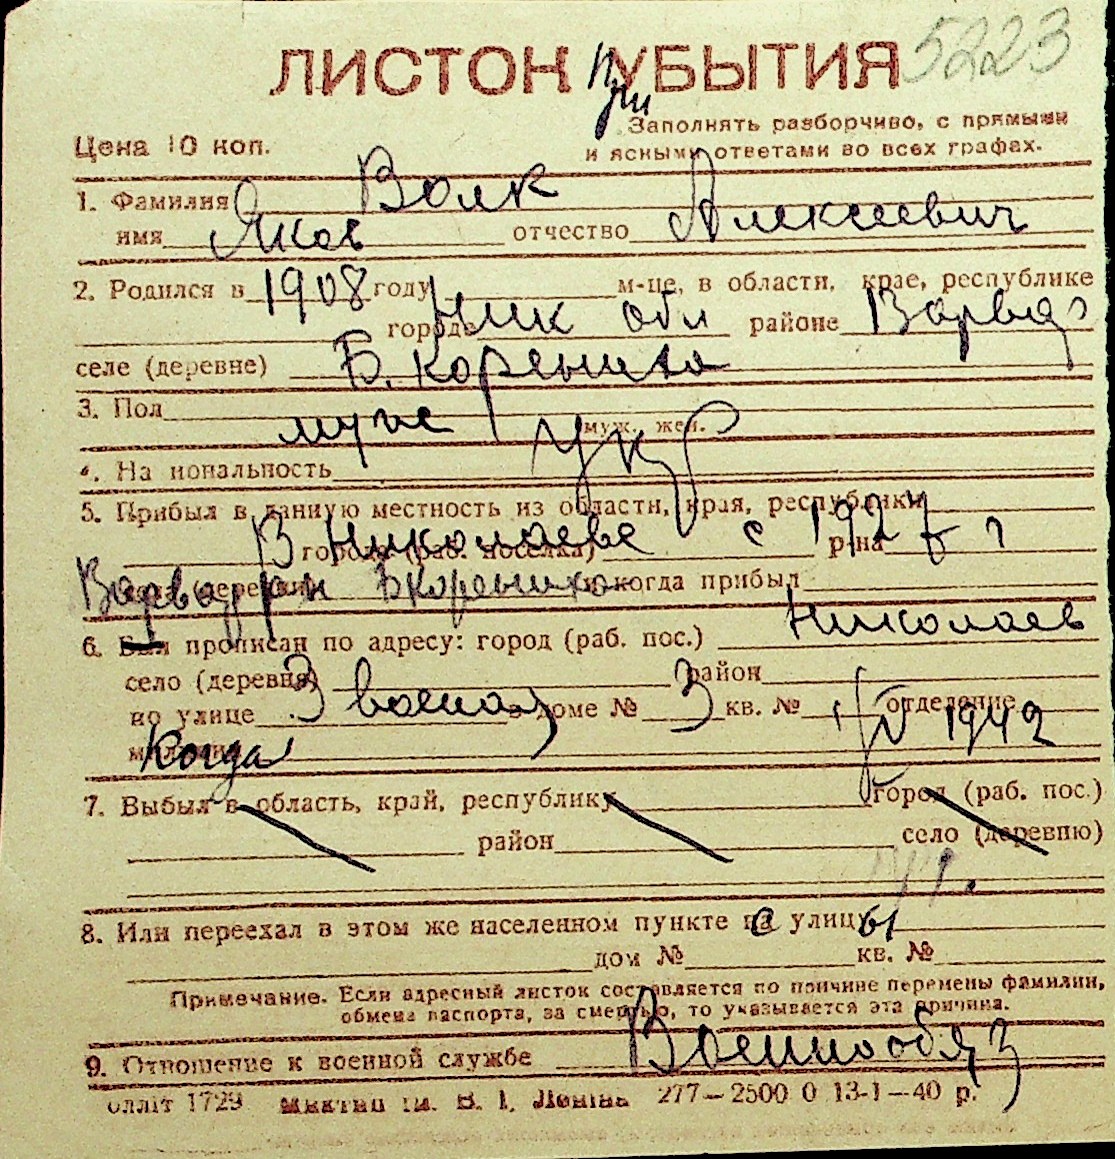 5223
ЛИСТОК При УБЫТИЯ
Цена 10 коп.
Заполнять разборчиво, с прямыми
и ясными ответами во всех графах.
1. Фамилия Волк
имя Яков отчество Алексеевич
2. Родился в 1908 году м-це, в области, крае, республике
городе Ник обл районе Варвар
селе (деревне) Б. Корениха
3. Пол муж муж. жен.
4. Национальность укр
5. Прибыл в данную местность из области, края, республики
В Николаеве с 1927 г
города (раб. поселка) р-на
Варвар рн Б Корениха и когда прибыл
6. Был прописан по адресу: город (раб. пос.) Николаев
село (деревня) район
по улице 3 военая в доме № 3 кв. № отделение
Когда 1/IV 1942
7. Выбыл в область, край, республику город (раб. пос.)
район село (деревню)
8. Или переехал в этом же населенном пункте с улицы
дом № кв. №
Примечание. Если адресный листок составляется по причине перемены фамилии,
обмена паспорта, за смертью, то указывается эта причина.
9. Отношение к военной службе Военнообяз
Оплліт 1729 ім. В. І. Леніна 277—2500 0 13-1—40 р.